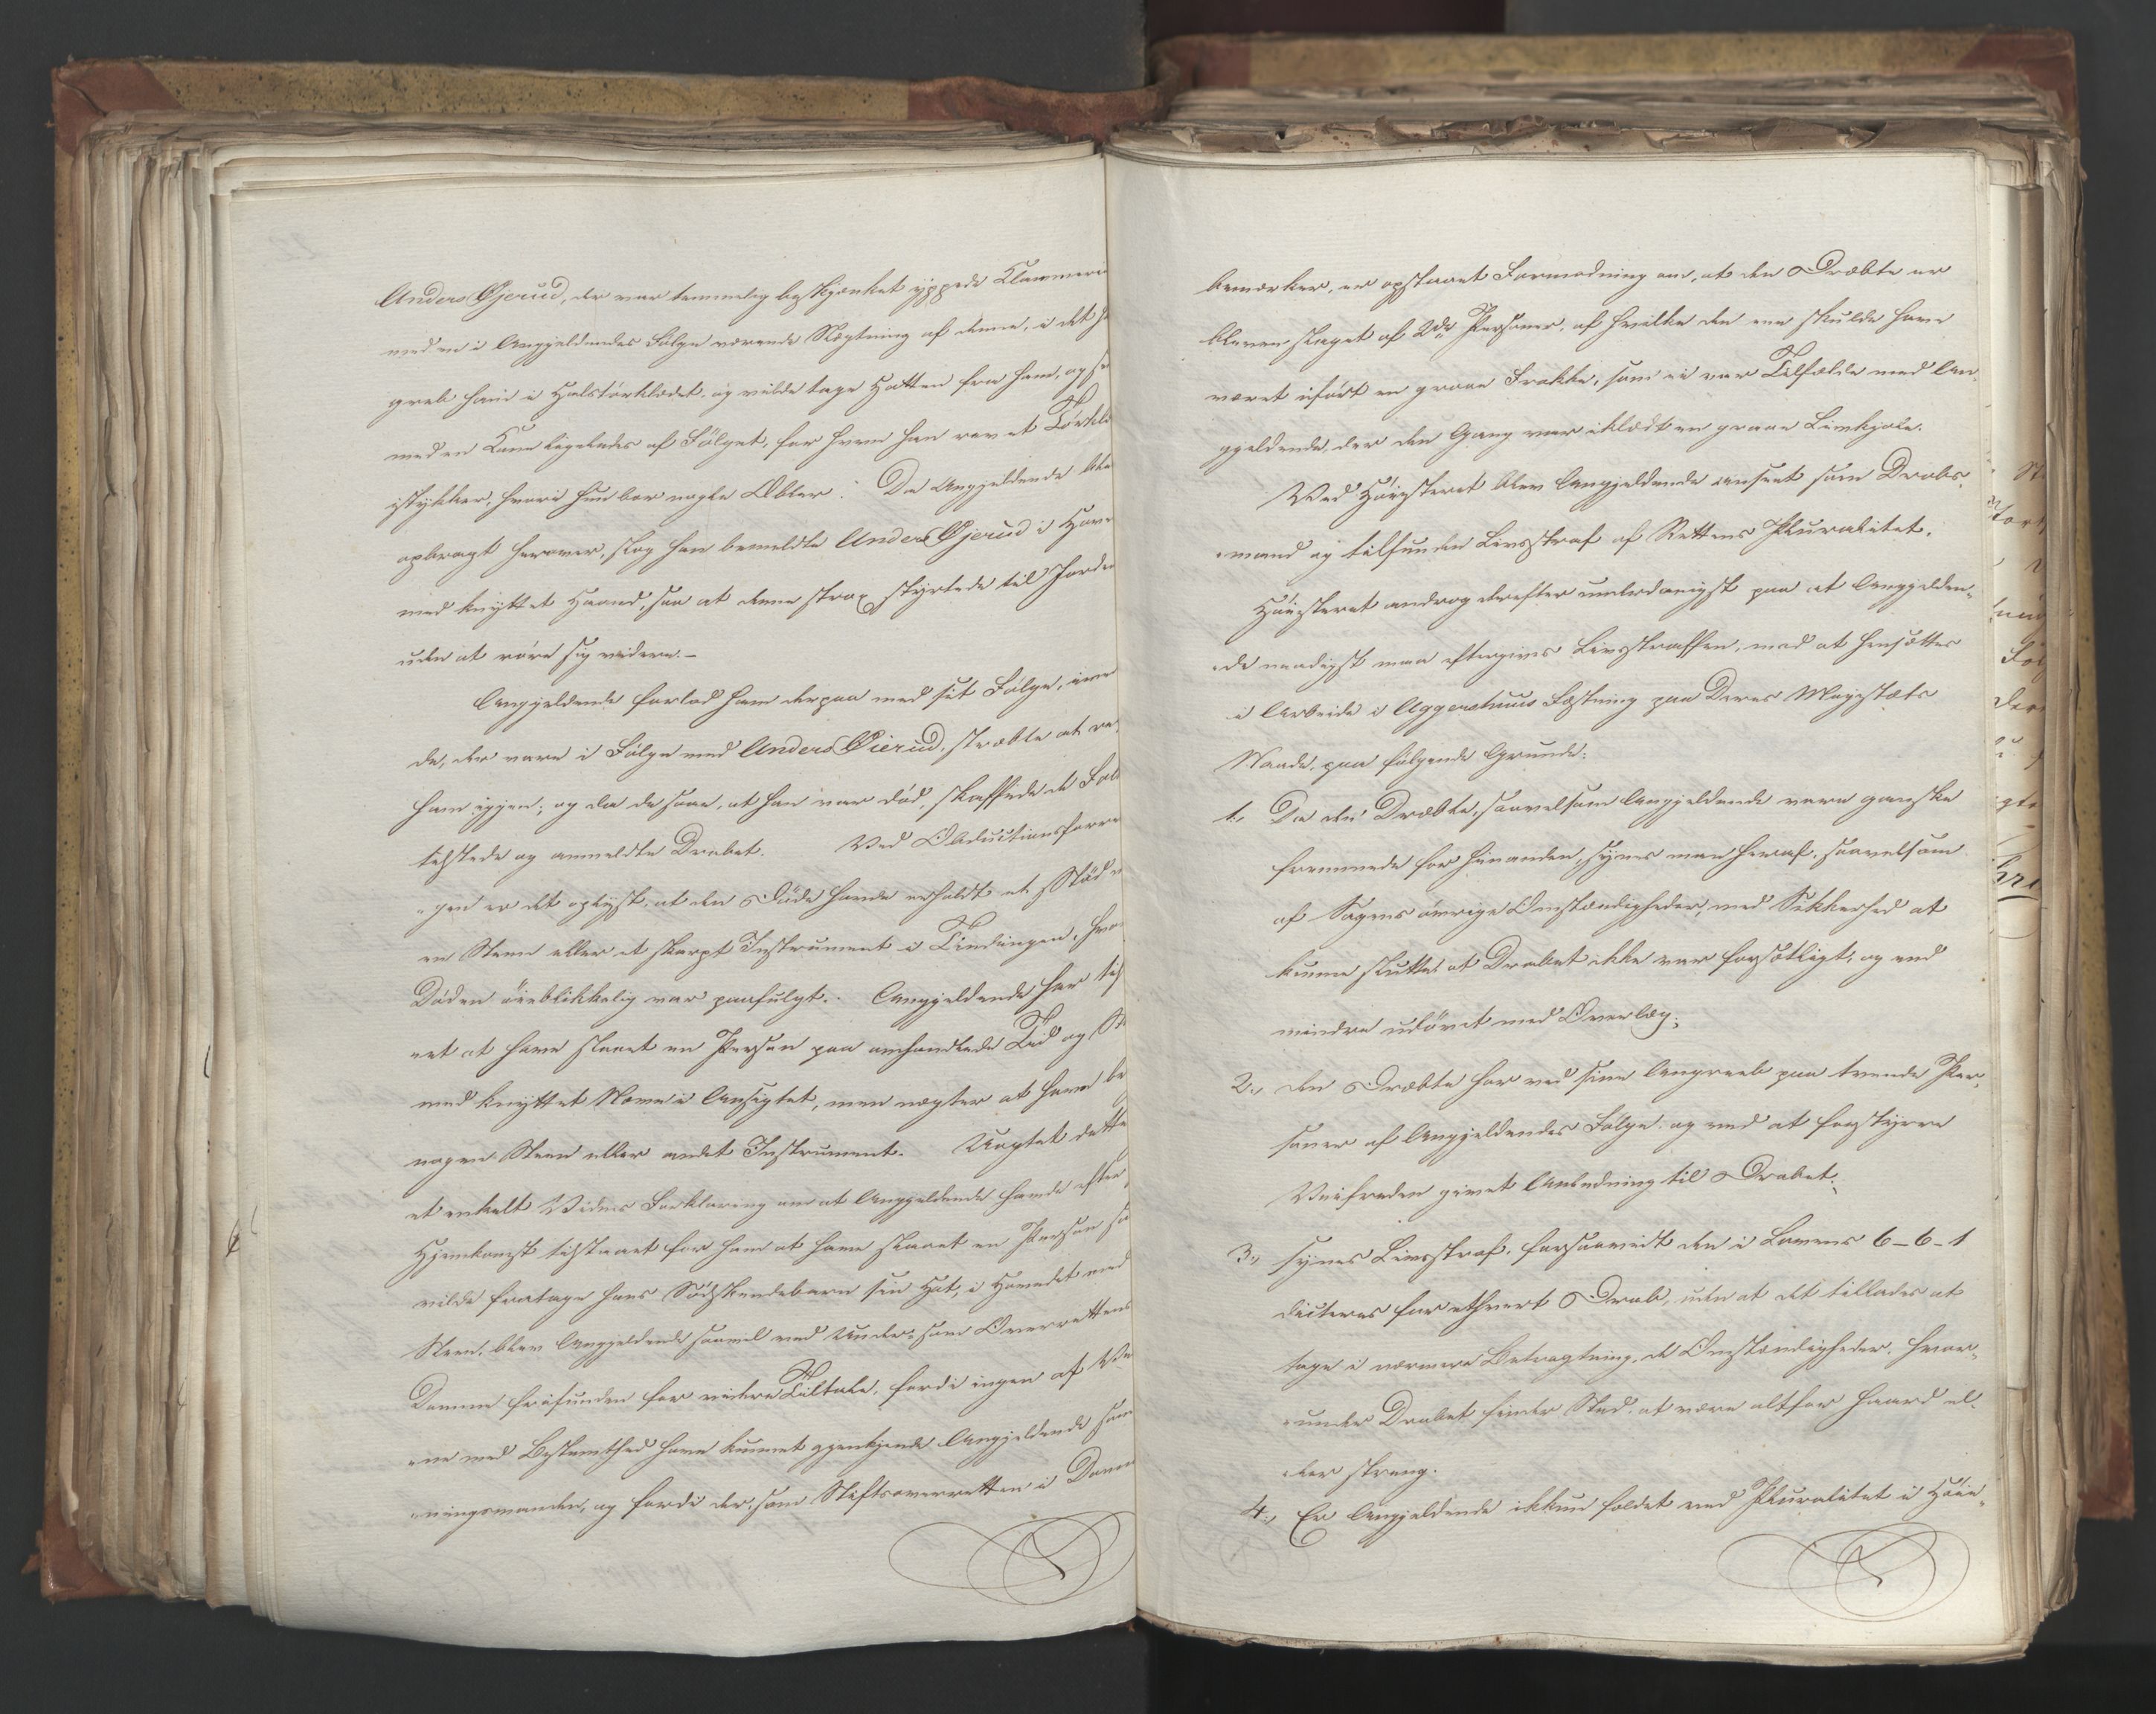 Anders Gjerud, der var temmelig beskjænket yppede Klammeri
med en i Angjeldendes Følge værende Slægtning af denne, i det h
greb ham i Halstørklædet, og vilde tage Hatten fra ham, og s
med en Kone ligeledes af Følget, for hvem han rev et Tørkla
istykker, hvori hun bar nogle Æbler. Da Angjeldende ble
opbragt herover, slog han bemeldte Anders Gjerud i Hove
med knyttet Haand, saa at denne strax styrtede til Jorden
uden at røre sig videre.–
Angjeldende forlod ham derpaa med sit Følge, im
de, der vare i Følge med Anders Gierud, stræbte at re
ham igjen; og da de saae, at han var død, skaffede de Fol
tilstede og anmeldte Drabet. Ved Obductionsforre
gen er det oplyst, at den Døde havde erholdt et Stød a
en Steen eller et skarpt Instrument i Tindingen, hvo
Døden øieblikkelig var paafulgt. Angjeldende har til
et at have slaaet en Person paa omhandlede Tid og St
med knyttet Næve i Ansigtet, men nægter at have be
nogen Steen eller andet Instrument. Uagtet dette
et enkelt Vidnes Forklaring om at Angjeldende havde efter
Hjemkomst tilstaaet for ham at have slaaet en Person so
vilde fratage hans Sødskendebarn sin Hat, i Hovedet med
Steen, blev Angjeldende saavel ved Under- som Overrettens
Domme frifunden for videre Tiltale, fordi ingen af Vid
ne med Bestemthed have kunnet gjenkjende Angjeldende som
ningsmanden, og fordi der, som Stiftsoverretten i Dom
bemærker, er opstaaet Formodning om, at den Dræbte er
bleven slaget af 2de Personer, af hvilke den ene skulde have
været iført en graae Frakke, som ei var Tilfælde med An-
gjeldende, der den Gang var iklædt en graae Livkjole.
Ved Høiesteret blev Angjeldende anseet som Drabs-
mand og tilfunden Livsstraf af Rettens Pluralitet.
Høiesteret androg derefter underdanigst paa at Angjelden-
de naadigst maa eftergives Livsstraffen, mod at hensættes
i Arbeide i Aggershuus Fæstning paa Deres Majestæts
Naade, paa følgende Grunde:
1., Da den Dræbte, saavelsom Angjeldende vare ganske
fremmede for hinanden, synes man heraf, saavelsom
af Sagens øvrige Omstændigheder, med Sikkerhed at
kunne slutte at Drabet ikke var forsætligt, og end
mindre udøvet med Overlæg;
2., den Dræbte har ved sine Angreb paa tvende Per-
soner af Angjeldendes Følge og ved at forstyrre
Veifreden givet Anledning til Drabet;
3., synes Livsstraf, forsaavidt den i Lovens 6–6–1
dicteres for ethvert Drab, uden at det tillades at
tage i nærmere Betragtning, de Omstændigheder, hvor-
under Drabet finder Sted at være altfor haard el-
ler streng.
4., Er Angjeldende ikkun fældet ved Pluralitet i Høie-